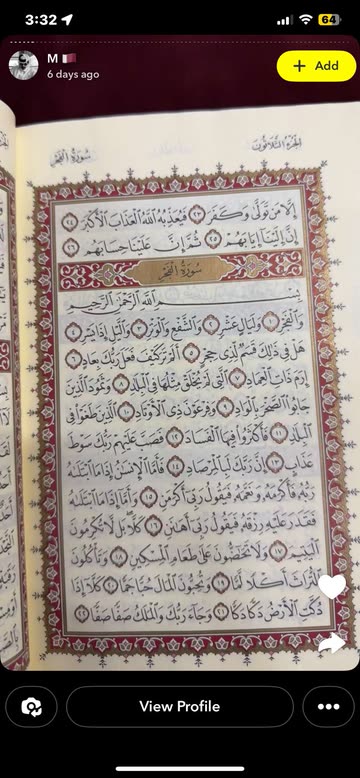 3:32
64
M 🇶🇦
6 days ago
+ Add
الجزء الثلاثون
سورة الفجر
إِلَّا مَن تَوَلَّىٰ وَكَفَرَ ٢٣ فَيُعَذِّبُهُ اللَّهُ الْعَذَابَ الْأَكْبَرَ ٢٤
إِنَّ إِلَيْنَا إِيَابَهُمْ ٢٥ ثُمَّ إِنَّ عَلَيْنَا حِسَابَهُم ٢٦
سورة الفجر
بِسْمِ اللَّهِ الرَّحْمَٰنِ الرَّحِيمِ
وَالْفَجْرِ ١ وَلَيَالٍ عَشْرٍ ٢ وَالشَّفْعِ وَالْوَتْرِ ٣ وَاللَّيْلِ إِذَا يَسْرِ ٤
هَلْ فِي ذَٰلِكَ قَسَمٌ لِّذِي حِجْرٍ ٥ أَلَمْ تَرَ كَيْفَ فَعَلَ رَبُّكَ بِعَادٍ ٦
إِرَمَ ذَاتِ الْعِمَادِ ٧ الَّتِي لَمْ يُخْلَقْ مِثْلُهَا فِي الْبِلَادِ ٨ وَثَمُودَ الَّذِينَ
جَابُوا الصَّخْرَ بِالْوَادِ ٩ وَفِرْعَوْنَ ذِي الْأَوْتَادِ ١٠ الَّذِينَ طَغَوْا فِي
الْبِلَادِ ١١ فَأَكْثَرُوا فِيهَا الْفَسَادَ ١٢ فَصَبَّ عَلَيْهِمْ رَبُّكَ سَوْطَ
عَذَابٍ ١٣ إِنَّ رَبَّكَ لَبِالْمِرْصَادِ ١٤ فَأَمَّا الْإِنسَانُ إِذَا مَا ابْتَلَاهُ
رَبُّهُ فَأَكْرَمَهُ وَنَعَّمَهُ فَيَقُولُ رَبِّي أَكْرَمَنِ ١٥ وَأَمَّا إِذَا مَا ابْتَلَاهُ
فَقَدَرَ عَلَيْهِ رِزْقَهُ فَيَقُولُ رَبِّي أَهَانَنِ ١٦ كَلَّا بَل لَّا تُكْرِمُونَ
الْيَتِيمَ ١٧ وَلَا تَحَاضُّونَ عَلَىٰ طَعَامِ الْمِسْكِينِ ١٨ وَتَأْكُلُونَ
التُّرَاثَ أَكْلًا لَّمًّا ١٩ وَتُحِبُّونَ الْمَالَ حُبًّا جَمًّا ٢٠ كَلَّا إِذَا
دُكَّتِ الْأَرْضُ دَكًّا دَكًّا ٢١ وَجَاءَ رَبُّكَ وَالْمَلَكُ صَفًّا صَفًّا ٢٢
View Profile